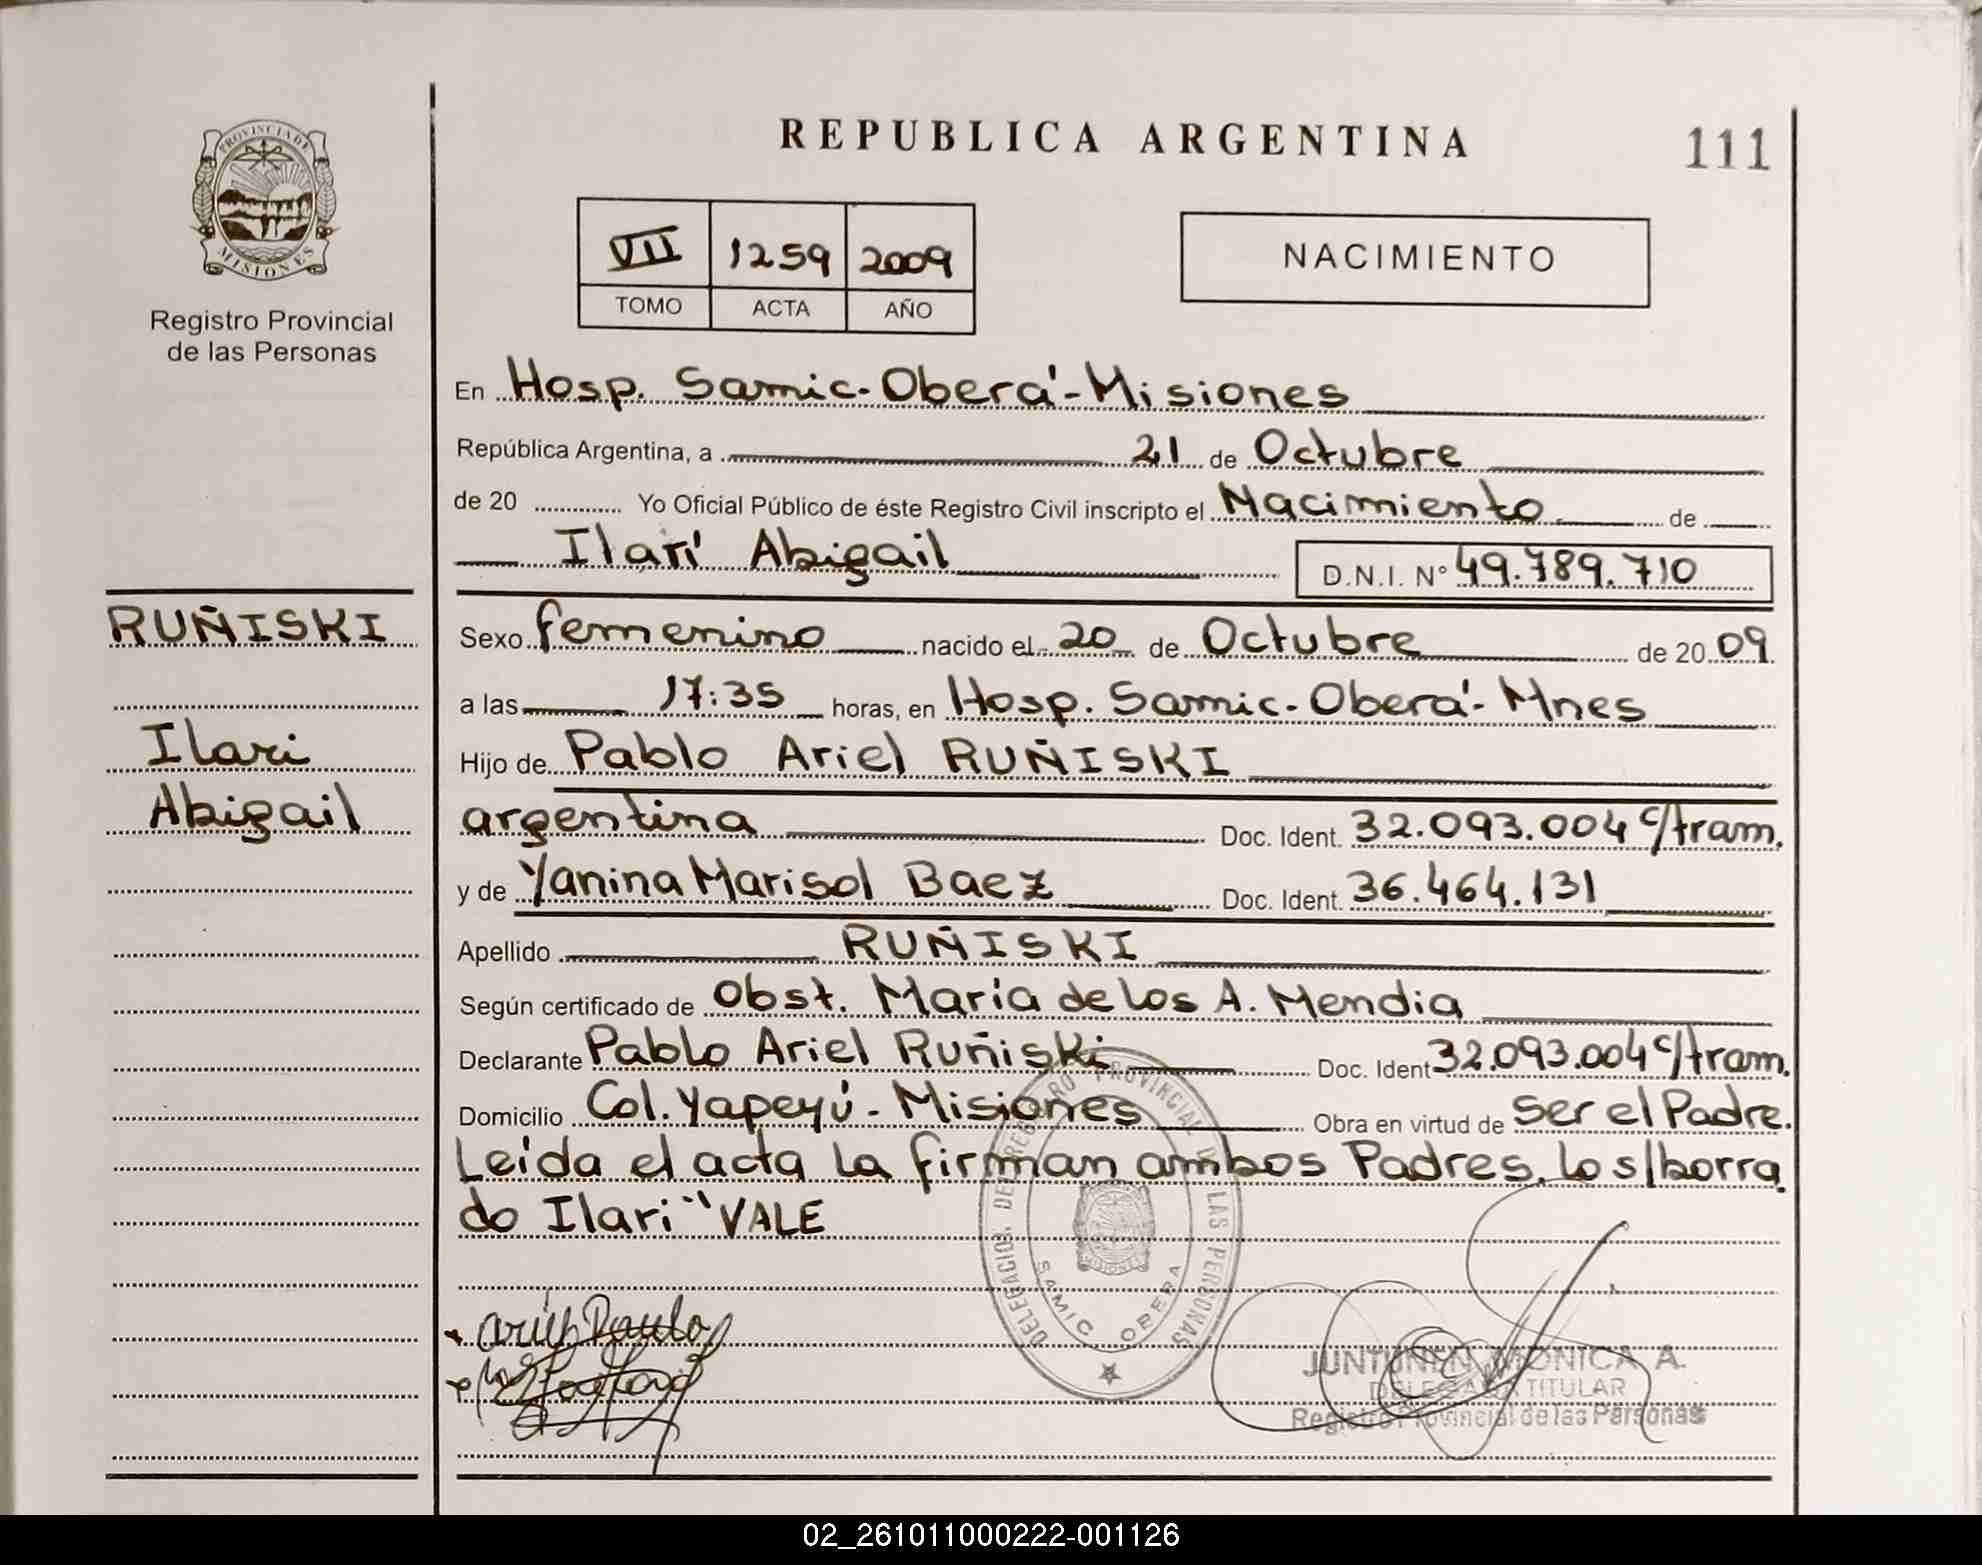 REPUBLICA ARGENTINA
111
PROVINCIA DE
MISIONES
Registro Provincial
de las Personas
VII 1259 2009
TOMO ACTA AÑO
NACIMIENTO
En Hosp. Samic-Oberá-Misiones
República Argentina, a 21 de Octubre
de 20 Yo Oficial Público de éste Registro Civil inscripto el Nacimiento de
Ilarí Abigail D.N.I. N° 49.789.710
RUÑISKI
Ilari
Abigail
Sexo femenino nacido el 20 de Octubre de 20 09
a las 17:35 horas, en Hosp. Samic-Oberá-Mnes
Hijo de Pablo Ariel RUÑISKI
argentina Doc. Ident. 32.093.004 c/tram.
y de Yanina Marisol Baez Doc. Ident. 36.464.131
Apellido RUÑISKI
Según certificado de Obst. María de los A. Mendia
Declarante Pablo Ariel Ruñiski Doc. Ident 32.093.004 c/tram.
Domicilio Col. Yapeyú - Misiones Obra en virtud de ser el Padre.
Leída el acta la firman ambos Padres. lo s/borra
do Ilari "VALE
DELEGACION DEL REGISTRO PROVINCIAL DE LAS PERSONAS
SAMIC OBERA
JUNTUNEN MONICA A.
DELEGADA TITULAR
Registro Provincial de las Personas
02_261011000222-001126